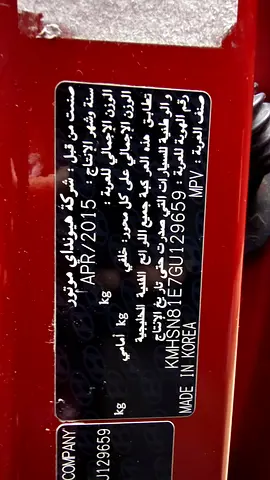 صنعت من قبل : شركة هيونداي موتور
سنة وشهر الإنتاج : APR/2015
الوزن الإجمالي للعربة : kg
الوزن الإجمالي على كل محور: خلفي kg أمامي kg
تطابق هذه العربة جميع اللوائح الفنية الخليجية
والوطنية للسيارات التي صدرت حتى تاريخ الإنتاج
رقم الهوية للعربة : KMHSN81E7GU129659
صنف العربة : MPV MADE IN KOREA
COMPANY
U129659